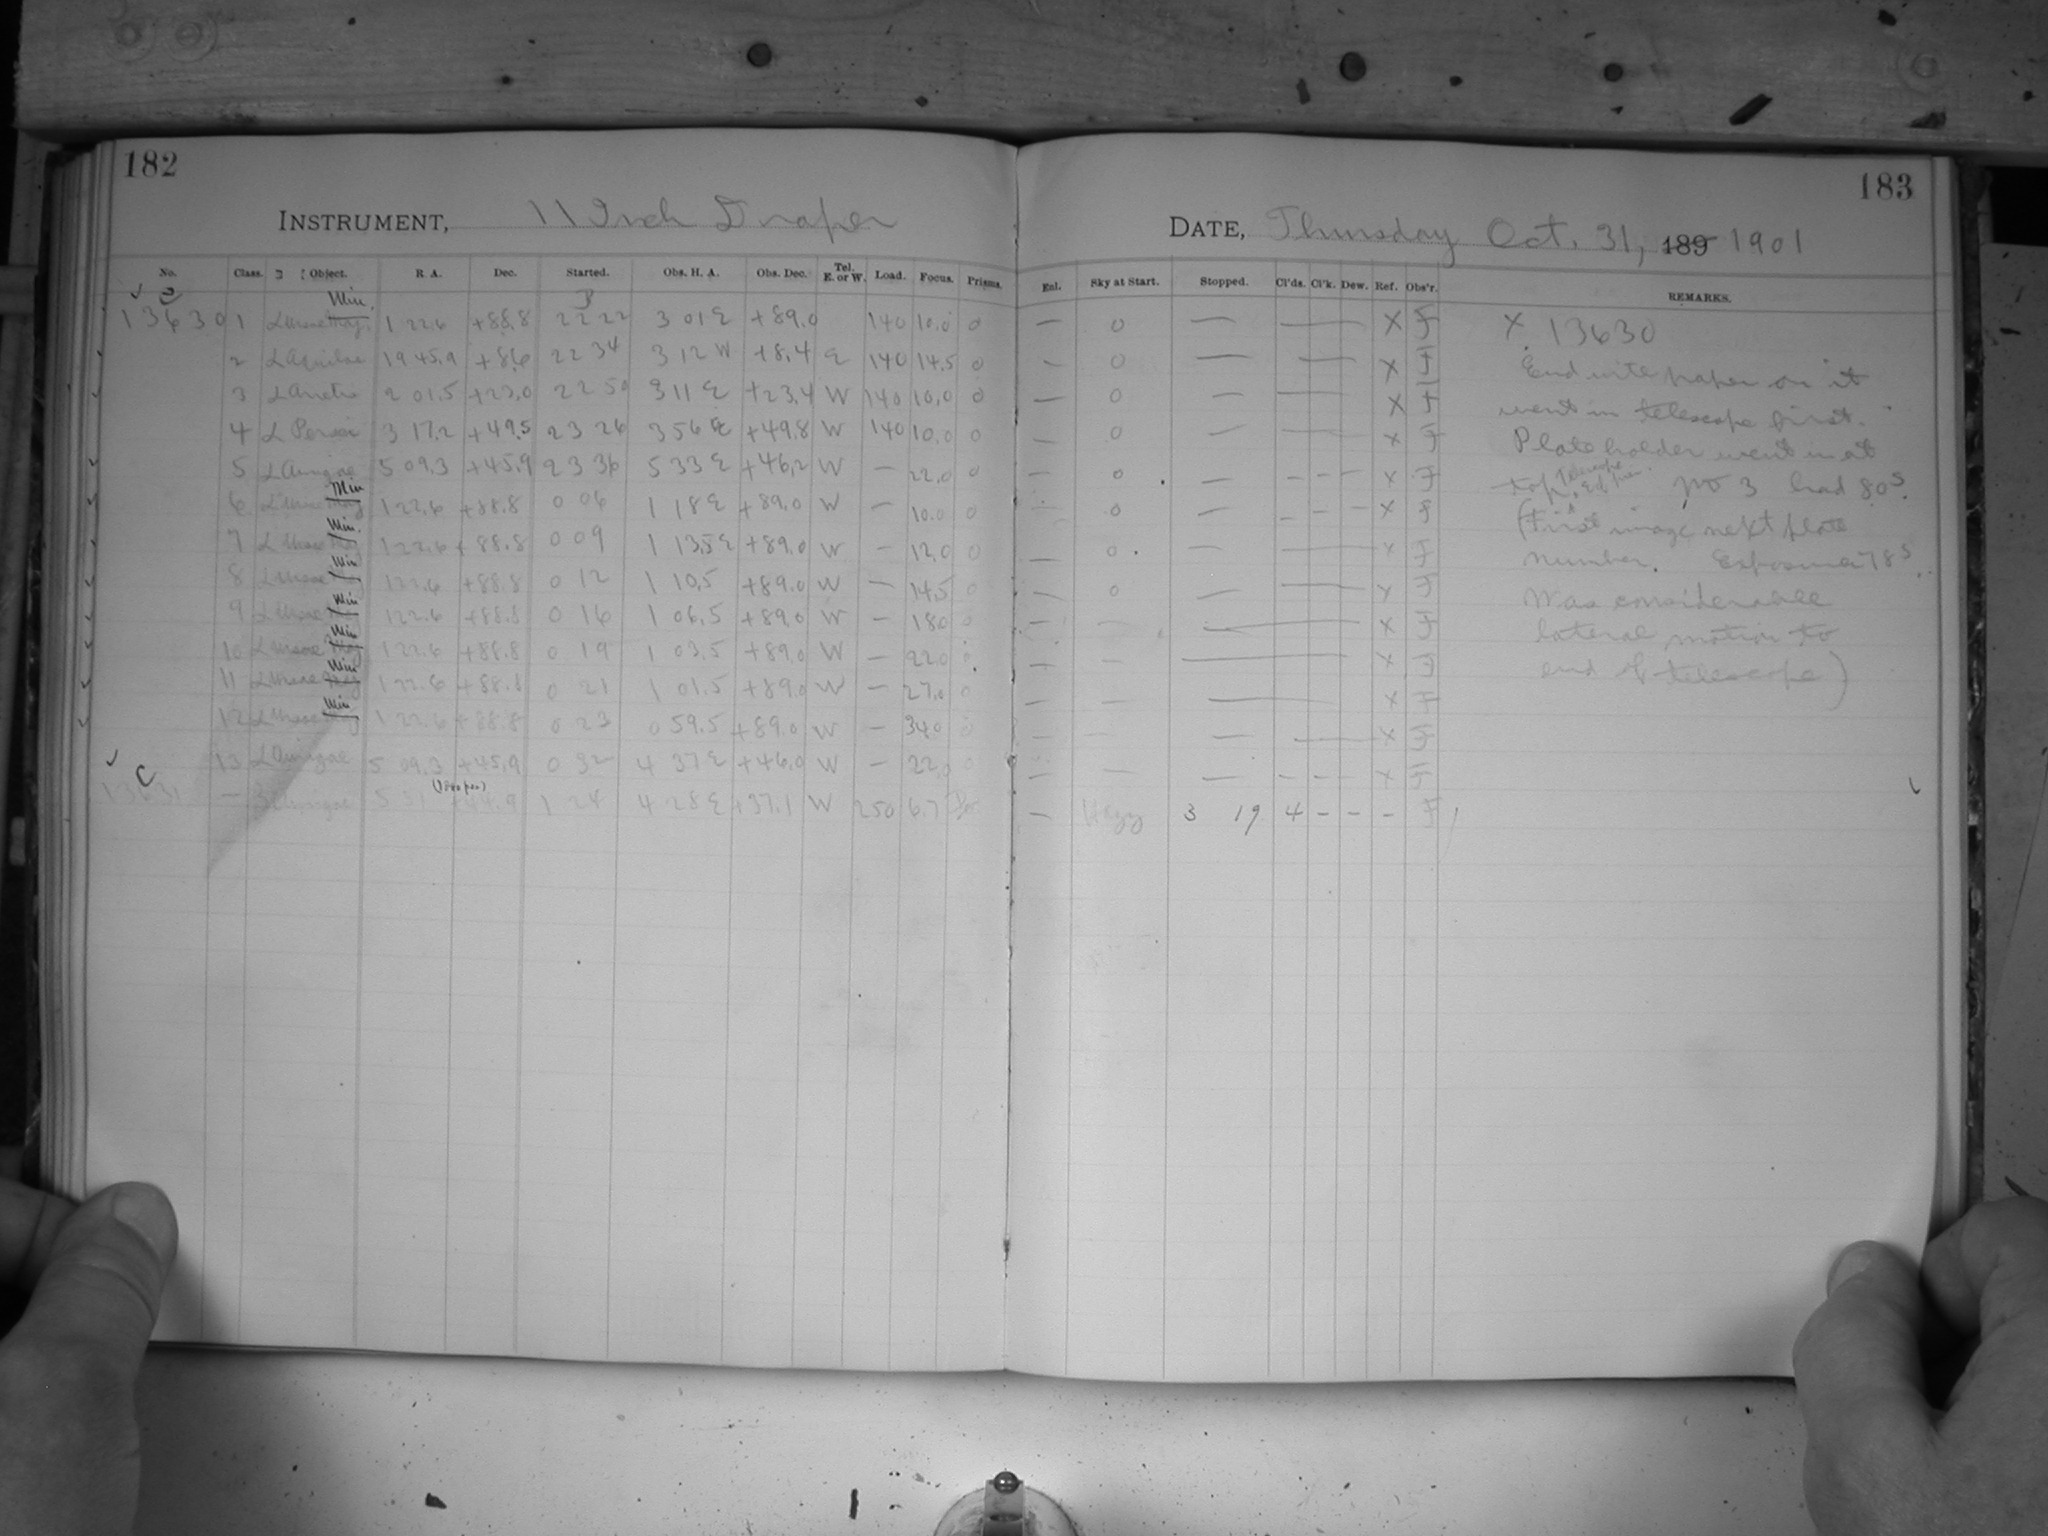 182
183
INSTRUMENT, 11 Inch Draper
DATE, Thursday Oct. 31, 189 1901
No. Class. Object. R A. Dec. Started. Obs. H. A. Obs. Dec. Tel. E. or W. Load. Focus. Prisms. Enl. Sky at Start. Stopped. Cl'ds. Cl'k. Dew. Ref. Obs'r. REMARKS.
Min.
13630 1 α Ursae Maj. 1 22.6 +88.8 22 22 3 01 E +89.0 140 10.0 0 — 0 — — X F X 13630
2 α Aquilae 19 45.9 +8.6 22 34 3 12 W +8.4 E 140 14.5 0 — 0 — — X F End with paper on it
3 α Arietis 2 01.5 +23.0 22 50 3 11 E +23.4 W 140 10.0 0 — 0 — — X F went in telescope first.
4 α Persei 3 17.2 +49.5 23 26 3 56 E +49.8 W 140 10.0 0 — 0 — — X F Plate holder went in at
5 α Aurigae 5 09.3 +45.9 23 36 5 33 E +46.2 W — 22.0 0 — 0 — - - - X F top, Telescope No 3 had 80s.
Min
6 α Ursae Maj 1 22.6 +88.8 0 06 1 18 E +89.0 W — 10.0 0 — 0 — - — X F (First image next plate
Min.
7 α Ursae Maj 1 22.6 +88.8 0 09 1 13.5 E +89.0 W — 12.0 0 — 0 — — X F number. Exposure 78s.
Min
8 α Ursae 1 22.6 +88.8 0 12 1 10.5 +89.0 W — 14.5 0 — 0 — — X F Was considerable
Min
9 α Ursae 1 22.6 +88.8 0 16 1 06.5 +89.0 W — 18.0 0 — — — X F lateral motion to
Min
10 α Ursae Maj 1 22.6 +88.8 0 19 1 03.5 +89.0 W — 22.0 0 — — — X F end of telescope)
Min
11 α Ursae Maj 1 22.6 +88.8 0 21 1 01.5 +89.0 W — 27.0 0 — — — X F
Min
12 α Ursae Maj 1 22.6 +88.8 0 23 0 59.5 +89.0 W — 34.0 0 — — — — X F
13 α Aurigae 5 09.3 +45.9 0 32 4 37 E +46.0 W — 22.0 0 — — — - - - X F
C
13631 — Aurigae 5 51 +44.9 1 24 4 28 E +37.1 W 250 6.7 — Hazy 3 19 4 - - - F